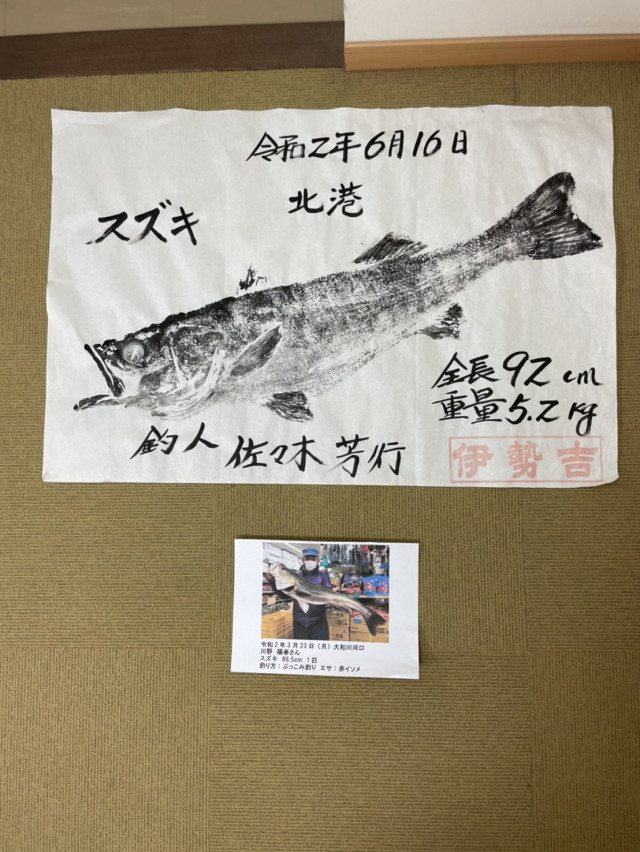 令和2年6月16日
北港
スズキ
全長92cm
重量5.2kg
釣人 佐々木 芳行
伊勢吉
令和2年3月23日(月)大和川河口
川野 陽春さん
スズキ 86.5cm 1匹
釣り方:ぶっこみ釣り エサ:赤イソメ